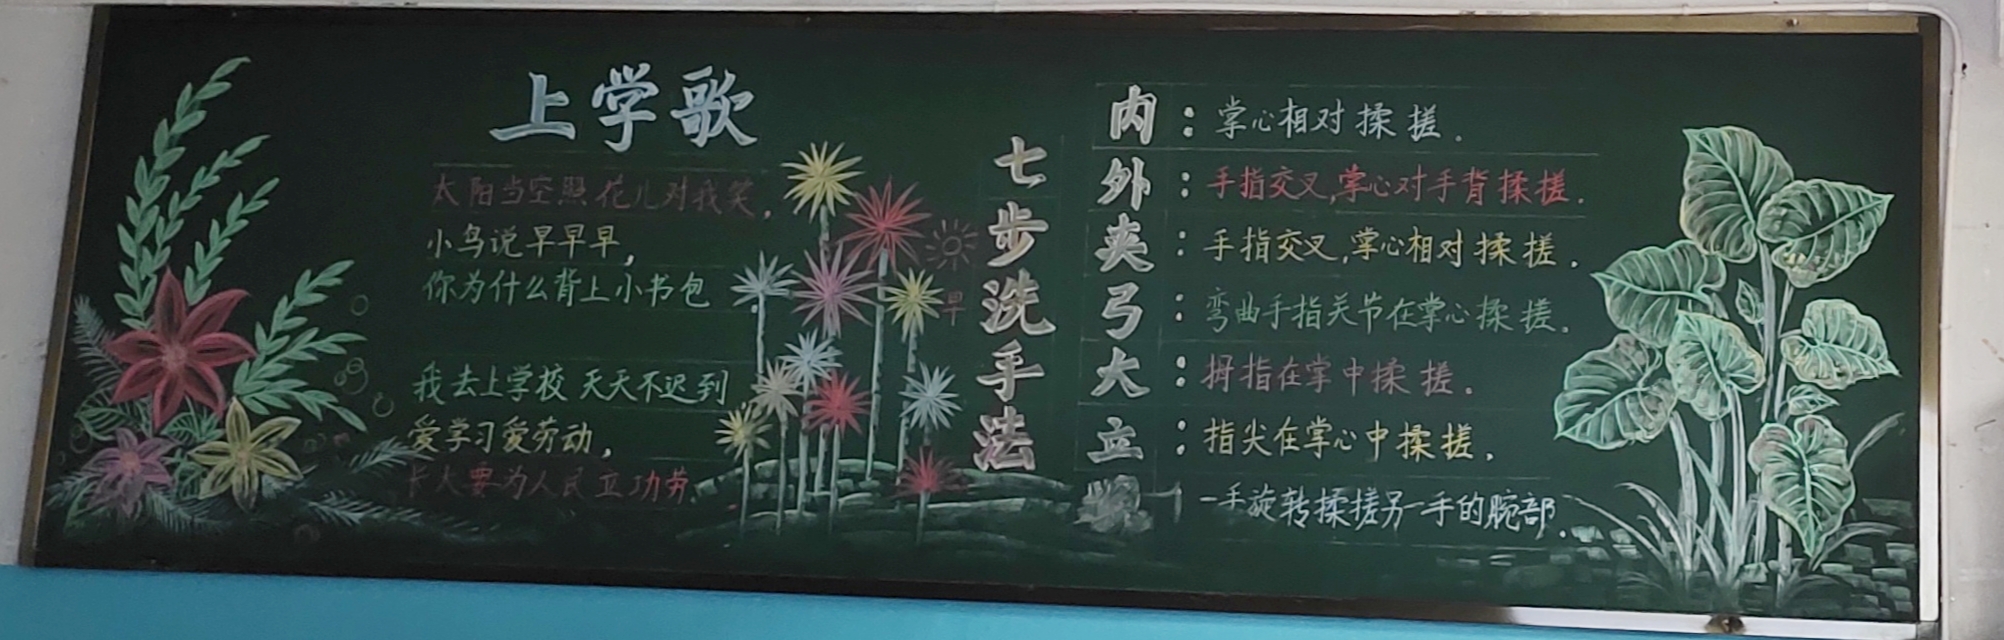 上学歌
太阳当空照花儿对我笑，
小鸟说早早早，
你为什么背上小书包
我去上学校天天不迟到
爱学习爱劳动，
长大要为人民立功劳.
早
七步洗手法
内：掌心相对揉搓。
外：手指交叉,掌心对手背揉搓.
夹：手指交叉,掌心相对揉搓.
弓：弯曲手指关节在掌心揉搓。
大：拇指在掌中揉搓。
立：指尖在掌心中揉搓.
：一手旋转揉搓另一手的腕部.